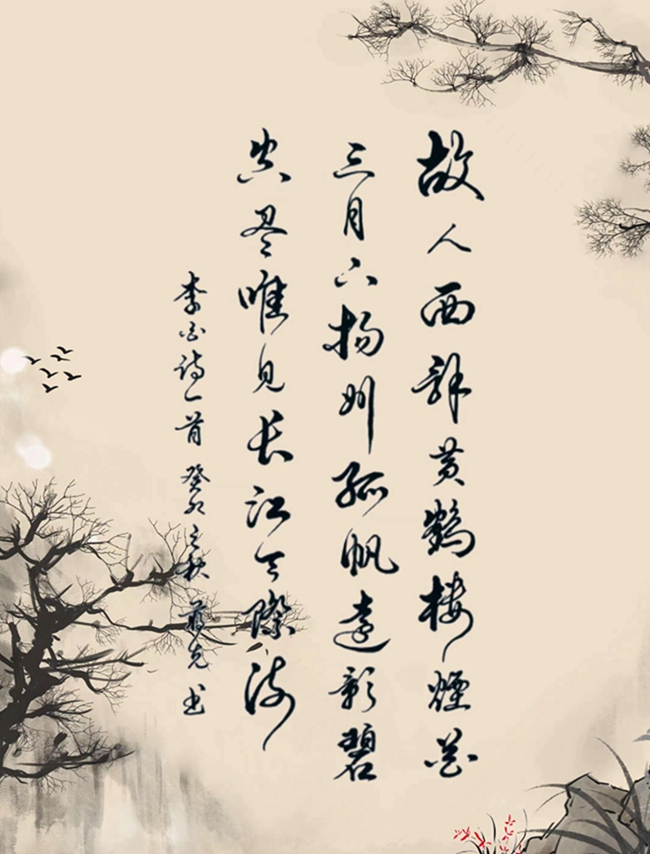 故人西辞黄鹤楼烟花
三月下扬州孤帆远影碧
空尽唯见长江天际流
李白诗一首 癸卯之秋 克书